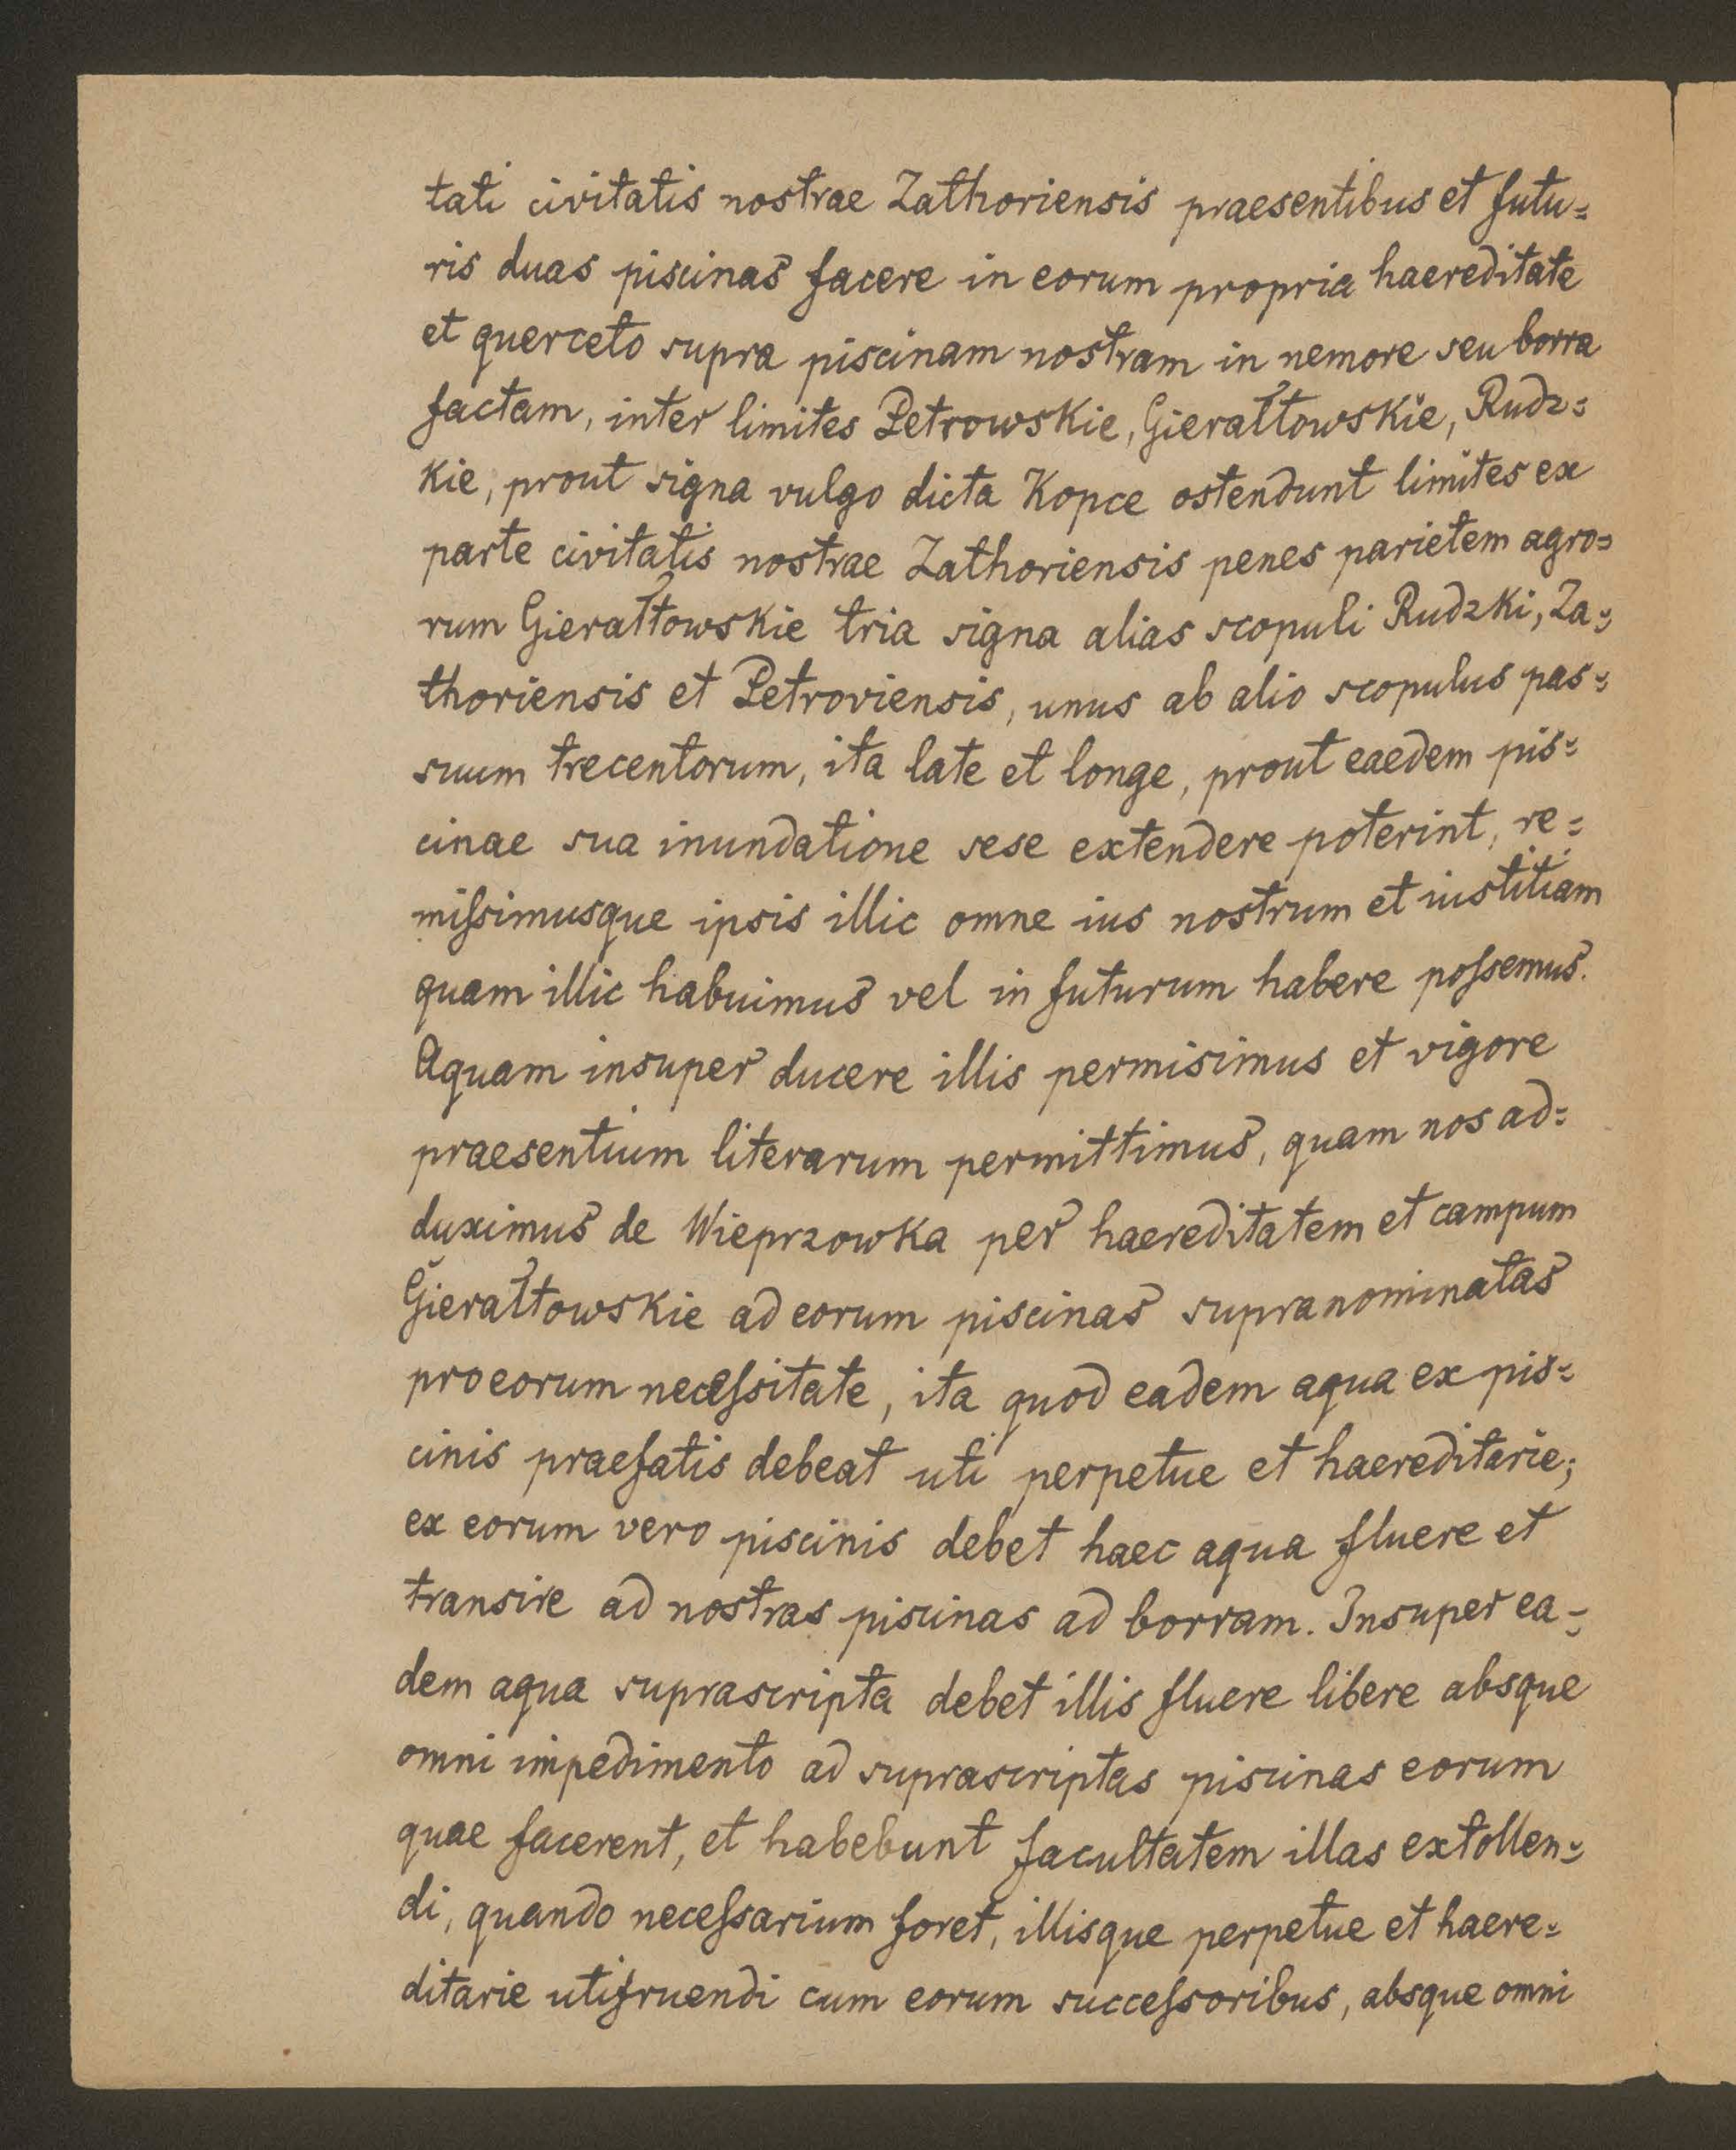 tati civitatis nostrae Zathoriensis praesentibus et futu=
ris duas piscinas facere in eorum propria haereditate
et querceto supra piscinam nostram in nemore seu borra
factam, inter limites Petrowskie, Gierałtowskie, Rudz=
kie, prout signa vulgo dicta Kopce ostendunt limites ex
parte civitatis nostrae Zathoriensis penes parietem agro=
rum Gierałtowskie tria signa alias scopuli Rudzki, Za=
thoriensis et Petroviensis, unus ab alio scopulus pas=
suum trecentorum, ita late et longe, prout eaedem pis=
cinae sua inundatione sese extendere poterint, re=
miſsimusque ipsis illic omne ius nostrum et iustitiam
quam illic habuimus vel in futurum habere poſsemus.
Aquam insuper ducere illis permisimus et vigore
praesentium literarum permittimus, quam nos ad=
duximus de Wieprzowka per haereditatem et campum
Gierałtowskie ad eorum piscinas supranominatas
pro eorum neceſsitate, ita quod eadem aqua ex pis=
cinis praefatis debeat uti perpetue et haereditarie;
ex eorum vero piscinis debet haec aqua fluere et
transire ad nostras piscinas ad borram. Insuper ea=
dem aqua suprascripta debet illis fluere libere absque
omni impedimento ad suprascriptas piscinas eorum
quae facerent, et habebunt facultatem illas extollen=
di, quando neceſsarium foret, illisque perpetue et haere=
ditarie utifruendi cum eorum succeſsoribus, absque omni